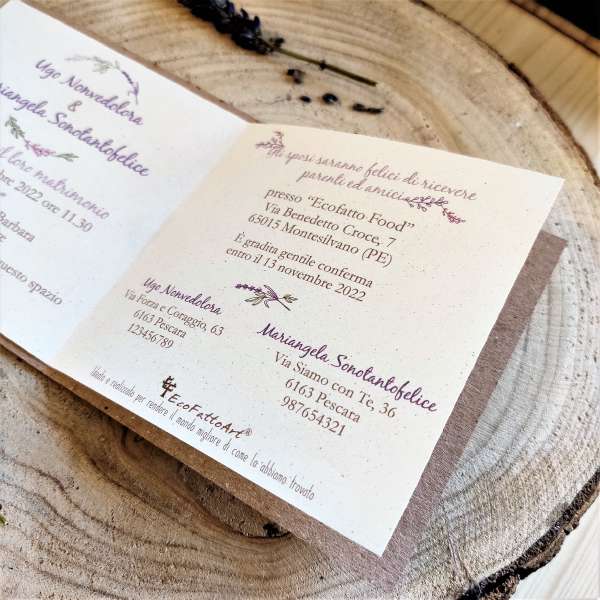 Ugo Nonvedolora
&
Mariangela Sonotantofelice
loro matrimonio
2022 ore 11.30
Barbara
questo spazio
Gli sposi saranno felici di ricevere
parenti ed amici
presso "Ecofatto Food"
Via Benedetto Croce, 7
65015 Montesilvano (PE)
È gradita gentile conferma
entro il 13 novembre 2022
Ugo Nonvedolora
Via Forza e Coraggio, 63
6163 Pescara
123456789
Mariangela Sonotantofelice
Via Siamo con Te, 36
6163 Pescara
987654321
EcoFattoArt®
Ideato e realizzato per rendere il mondo migliore di come lo abbiamo trovato